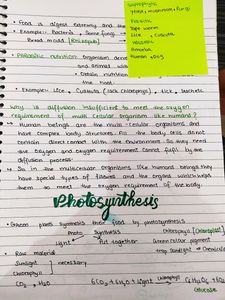 Food is digest externally and the
Example:- Bacteria, Some fungi
Bread mold [Rhizopus]
Parasitic nutrition: Organism derive
and animal with
Obtain nutrition
the host
Example:- Lice, Cuscuta (lack chlorophyll), tick, leeches
Saprophytic
Yeast, mushroom, fungi
Parasitic
Tape worm
Lice, Cuscuta
Holozoic
Amoeba
Human, dog
Why is diffusion insufficient to meet the oxygen
requirement of multi cellular organism like humans?
Human beings are the multi-cellular organisms and
have complex body structures. All the body cells do not
contain direct contact with the environment. So they need
the oxygen and oxygen requirement cannot fulfil by the
diffusion process.
So in the multicellular organisms like human beings they
have special types of tissues and the organs which helps
them to meet the oxygen requirement of the body.
Photosynthesis
Green plants synthesis their food by photosynthesis
Photo Synthesis Chlorophyll [Chloroplast]
Light Put together Green cellular pigment
Raw material trap Sunlight → Chemical
Sunlight
Chlorophyll necessary
CO2, H2O 6CO2 + 6H2O + light Chlorophyll C6H12O6 + 6O
Glucose